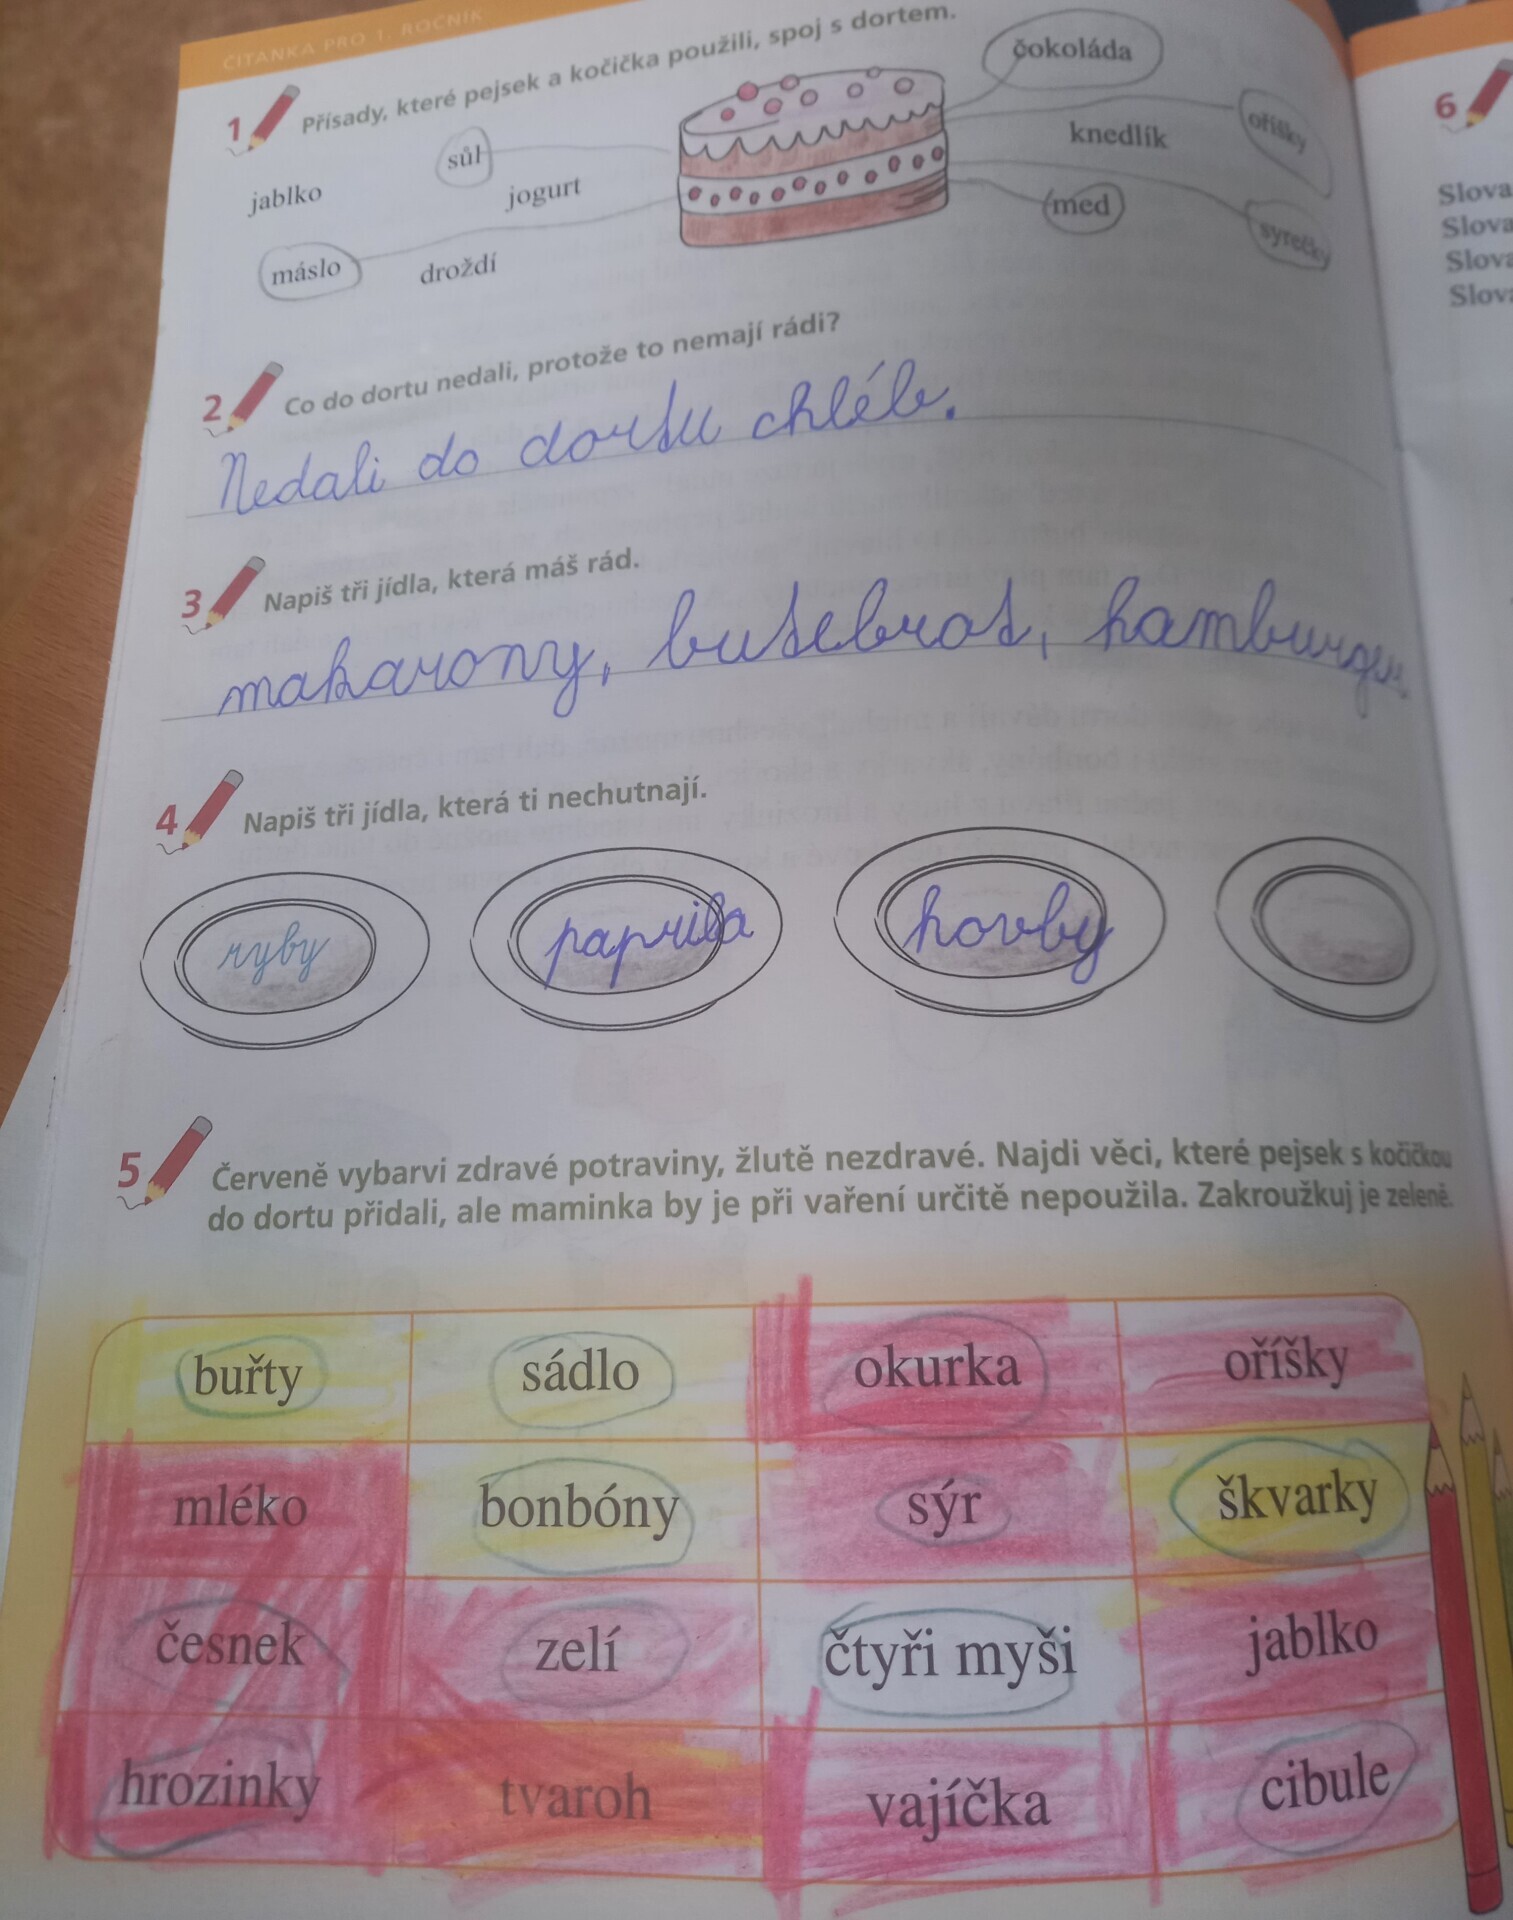 ČÍTANKA PRO 1. ROČNÍK
1 Přísady, které pejsek a kočička použili, spoj s dortem.
čokoláda
sůl
knedlík
oříšky
jablko
jogurt
med
syrečky
máslo
droždí
2 Co do dortu nedali, protože to nemají rádi?
Nedali do dortu chléb.
3 Napiš tři jídla, která máš rád.
makarony, butebrot, hamburger
4 Napiš tři jídla, která ti nechutnají.
ryby paprika hovby
5 Červeně vybarvi zdravé potraviny, žlutě nezdravé. Najdi věci, které pejsek s kočičkou
do dortu přidali, ale maminka by je při vaření určitě nepoužila. Zakroužkuj je zeleně.
buřty sádlo okurka oříšky
mléko bonbóny sýr škvarky
česnek zelí čtyři myši jablko
hrozinky tvaroh vajíčka cibule
6
Slova
Slova
Slova
Slova